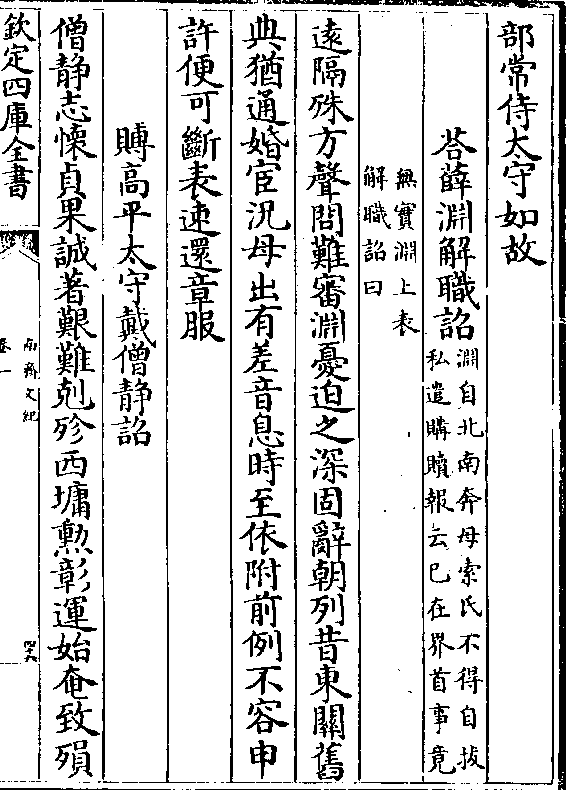 部常侍太守如故
荅薛淵解職詔淵自北南奔母索氏不得自拔
私遣購贖報云已在界首事竟
無實淵上表
解職詔曰
遠隔殊方聲問難審淵憂迫之深固辭朝列昔東關舊
典猶通婚宦況母出有差音息時至依附前例不容申
許便可斷表速還章服
賻高平太守戴僧静詔
僧静志懷貞果誠著艱難剋殄西墉勲彰運始奄致殞
欽定四庫全書
南齊文紀
卷一